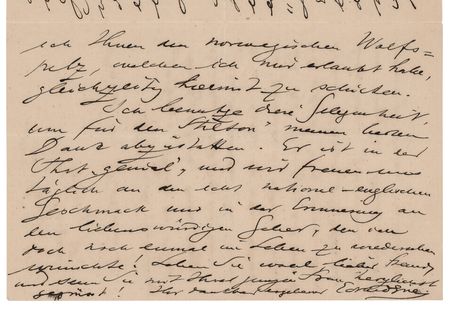 ich Ihnen den norwegischen Wolfs=
pelz, welchen ich mir erlaubt habe,
gleichzeitig hiermit zu schicken.
Ich benutze diese Gelegenheit
um für den "Stilton" meinen besten
Dank abzustatten. Er ist in der
That genial, und wir freuen uns
täglich an den echt national-englischen
Geschmack und in der Erinnerung an
den liebenswürdigen Geber, den man
doch noch einmal im Leben zu wiedersehen
wünschte! Leben Sie wohl, lieber Freund,
und seien Sie mit Ihrer jungen Frau herzlichst
gegrüsst! Ihr dankbar ergebener Edv. Grieg